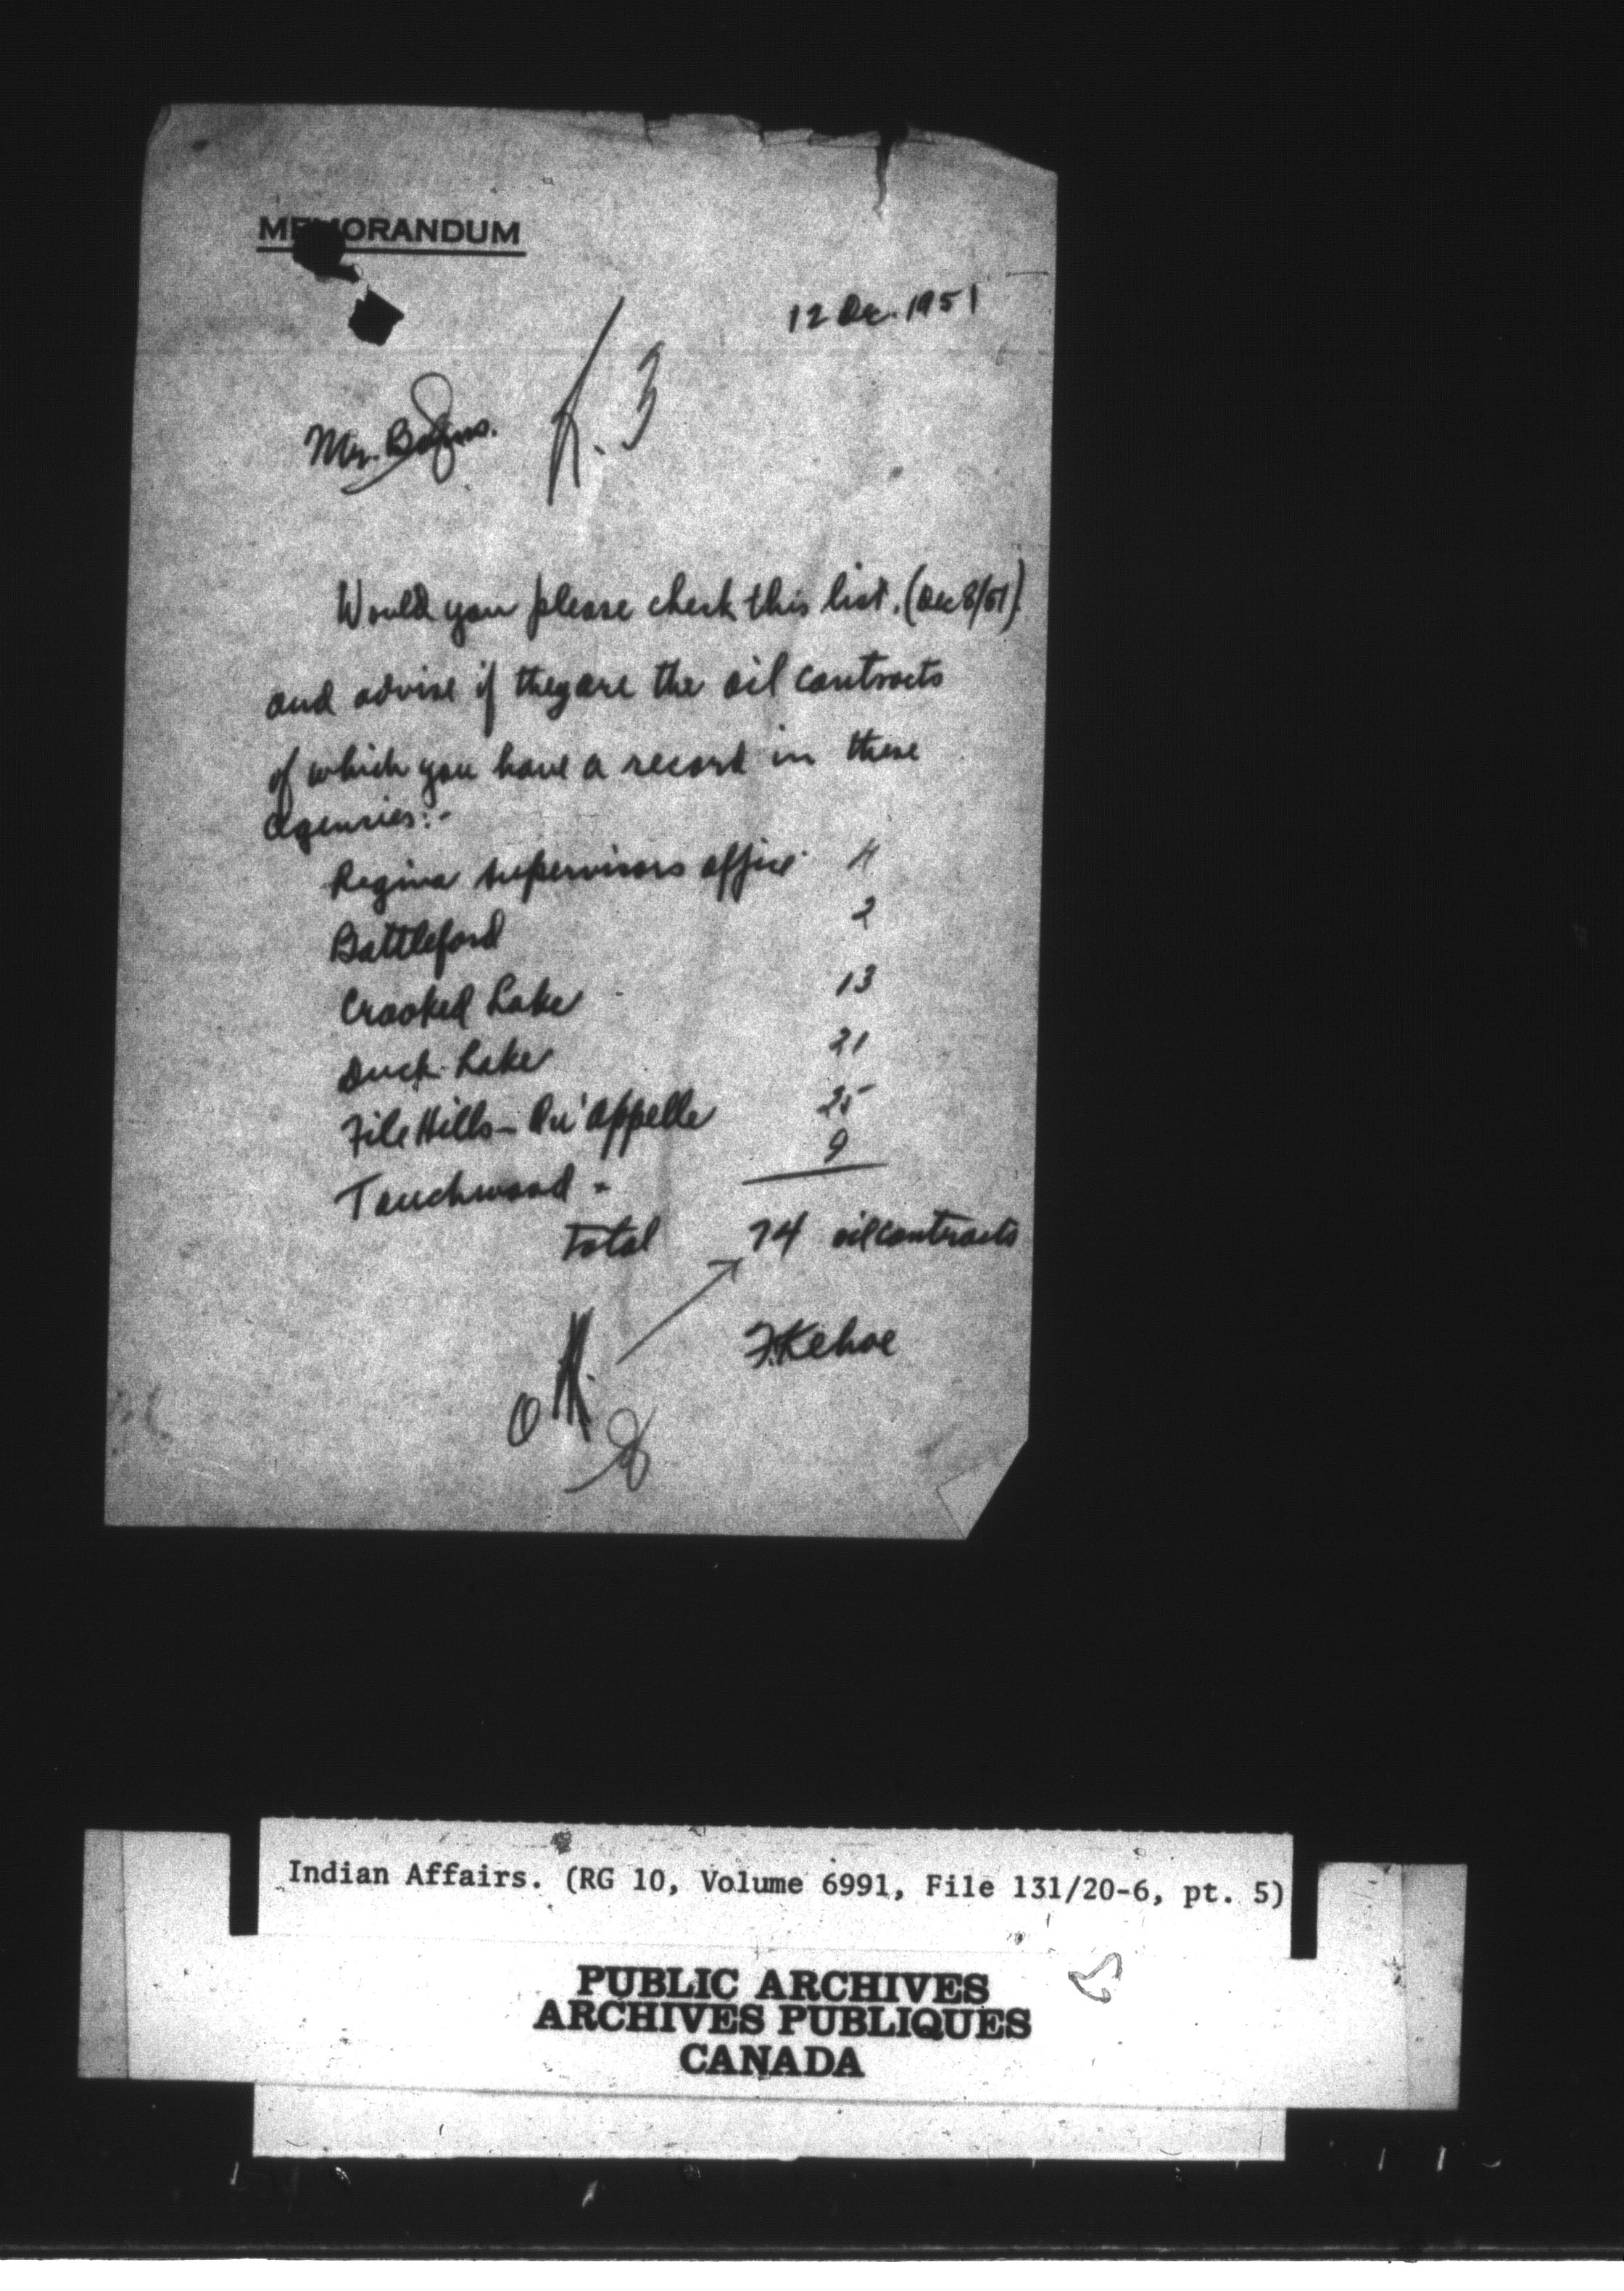 MEMORANDUM
12 Dec. 1951
Mr.
K. 3
Would you please check this list. (Dec 8/51).
and advise if they are the oil contracts
of which you have a record in these
Agencies:-
Regina supervisors office 4
Battleford 2
Crooked Lake 13
Duck Lake 21
File Hills - Qu'appelle 25
Touchwood - 9
Total 74 oil contracts
F. Kehoe
OK.
Indian Affairs. (RG 10, Volume 6991, File 131/20-6, pt. 5)
PUBLIC ARCHIVES
ARCHIVES PUBLIQUES
CANADA